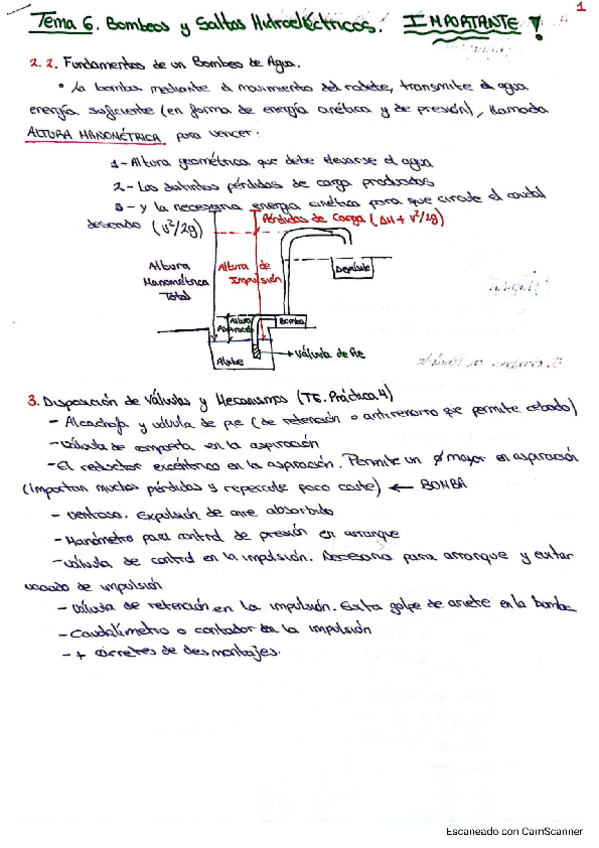 1
Tema 6. Bombeos y Saltos Hidroeléctricos. IMPORTANTE!
2.2. Fundamentos de un Bombeo de Agua.
• La bomba mediante el movimiento del rodete, transmite al agua
energía suficiente (en forma de energía cinética y de presión), llamada
ALTURA MANOMÉTRICA para vencer:
1- Altura geométrica que debe elevarse el agua
2- Las distintas pérdidas de carga producidas
3- y la necesaria energia cinética para que circule el caudal
deseado (v²/2g)
Pérdidas de Carga (ΔH + v²/2g)
Altura Manométrica Total
Altura de Impulsión
Depósito
Altura Aspiración
Bomba
Aljibe
→ Válvula de Pie
3. Disposición de Válvulas y Mecanismos (T6. Práctica 4)
- Alcachofa y válvula de pie (de retención o antirretorno que permite cebado)
- Válvula de compuerta en la aspiración
- El reductor excéntrico en la aspiración. Permite un ø mayor en aspiración
(importan mucho pérdidas y repercute poco coste) ← BOMBA
- Ventosa. Expulsión de aire absorbido
- Manómetro para control de presión en arranque
- Válvula de control en la impulsión. Necesaria para arranque y evitar
vaciado de impulsión
- Válvula de retención en la impulsión. Evita golpe de ariete en la bomba
- Caudalímetro o contador en la impulsión
- + carretes de desmontajes.
Escaneado con CamScanner